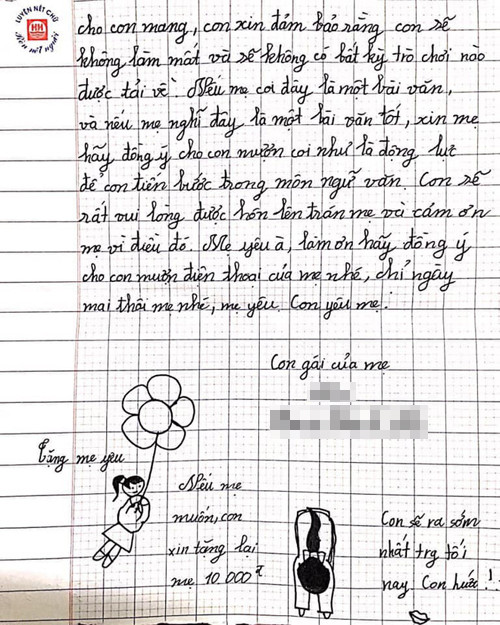 LUYỆN NÉT CHỮ
Rèn nết người
cho con mang, con xin đảm bảo rằng con sẽ
không làm mất và sẽ không có bất kỳ trò chơi nào
được tải về. Nếu mẹ coi đây là một bài văn,
và nếu mẹ nghĩ đây là một bài văn tốt, xin mẹ
hãy đồng ý cho con mượn coi như là động lực
để con tiến bước trong môn ngữ văn. Con sẽ
rất vui lòng được hôn lên trán mẹ và cám ơn
mẹ vì điều đó. Mẹ yêu à, làm ơn hãy đồng ý
cho con mượn điện thoại của mẹ nhé, chỉ ngày
mai thôi mẹ nhé, mẹ yêu. Con yêu mẹ!
Con gái của mẹ
Tặng mẹ yêu
Nếu mẹ
muốn, con
xin tặng lại
mẹ 10.000đ
Con sẽ ra sớm
nhất trg tối
nay. Con hứa!